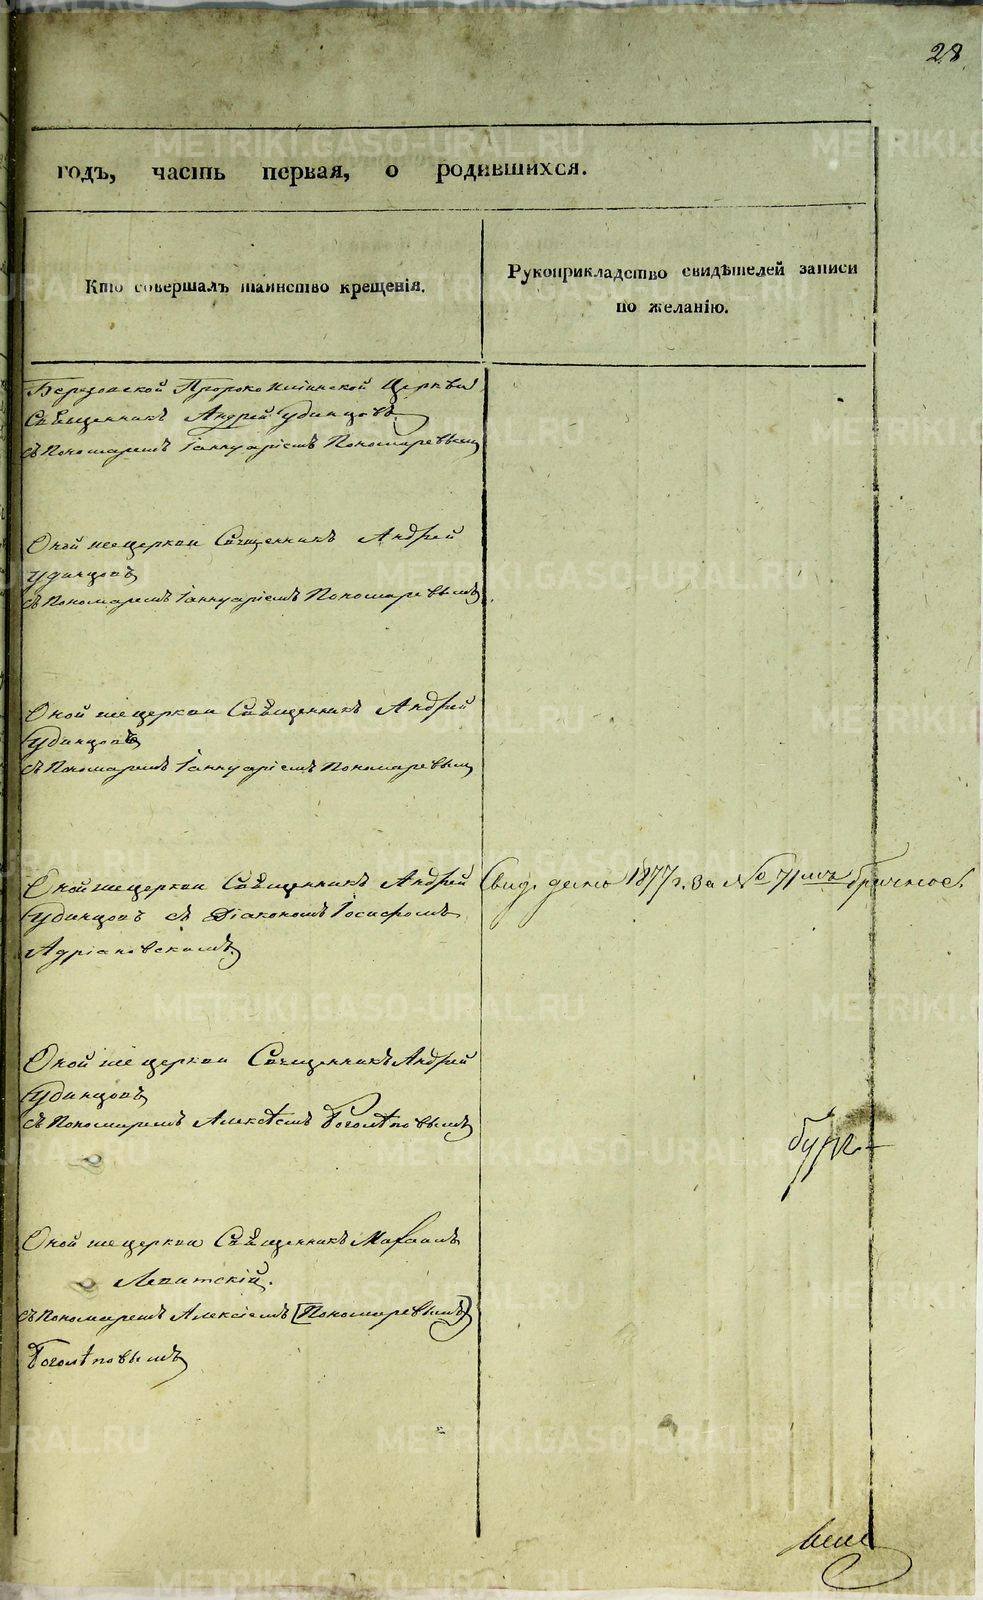 28
годъ, часть первая, о родившихся.
Кто совершалъ таинство крещенія.
Рукоприкладство свидѣтелей записи
по желанію.
Березовской Пророко Илiинской Церкви
Священникъ Андрей Удинцовъ
съ Пономаремъ Іаннуаріемъ Пономаревым
Оной же церкви Священникъ Андрей
Удинцовъ
съ Пономаремъ Іаннуаріемъ Пономаревымъ
Оной же церкви Священникъ Андрей
Удинцовъ
съ Пономаремъ Іаннуаріемъ Пономаревым
Оной же церкви Священникъ Андрей
Удинцовъ съ Діакономъ Іосифомъ
Адріановскимъ
Свид. дано 1877 г. за № 71
Оной же церкви Священникъ Андрей
Удинцовъ
съ Пономаремъ Алексѣемъ Боголѣповымъ
Оной же церкви Священникъ Михаилъ
Левитскій.
съ Пономаремъ Алексіемъ (Пономаревымъ)
Боголѣповымъ
METRIKI.GASO-URAL.RU